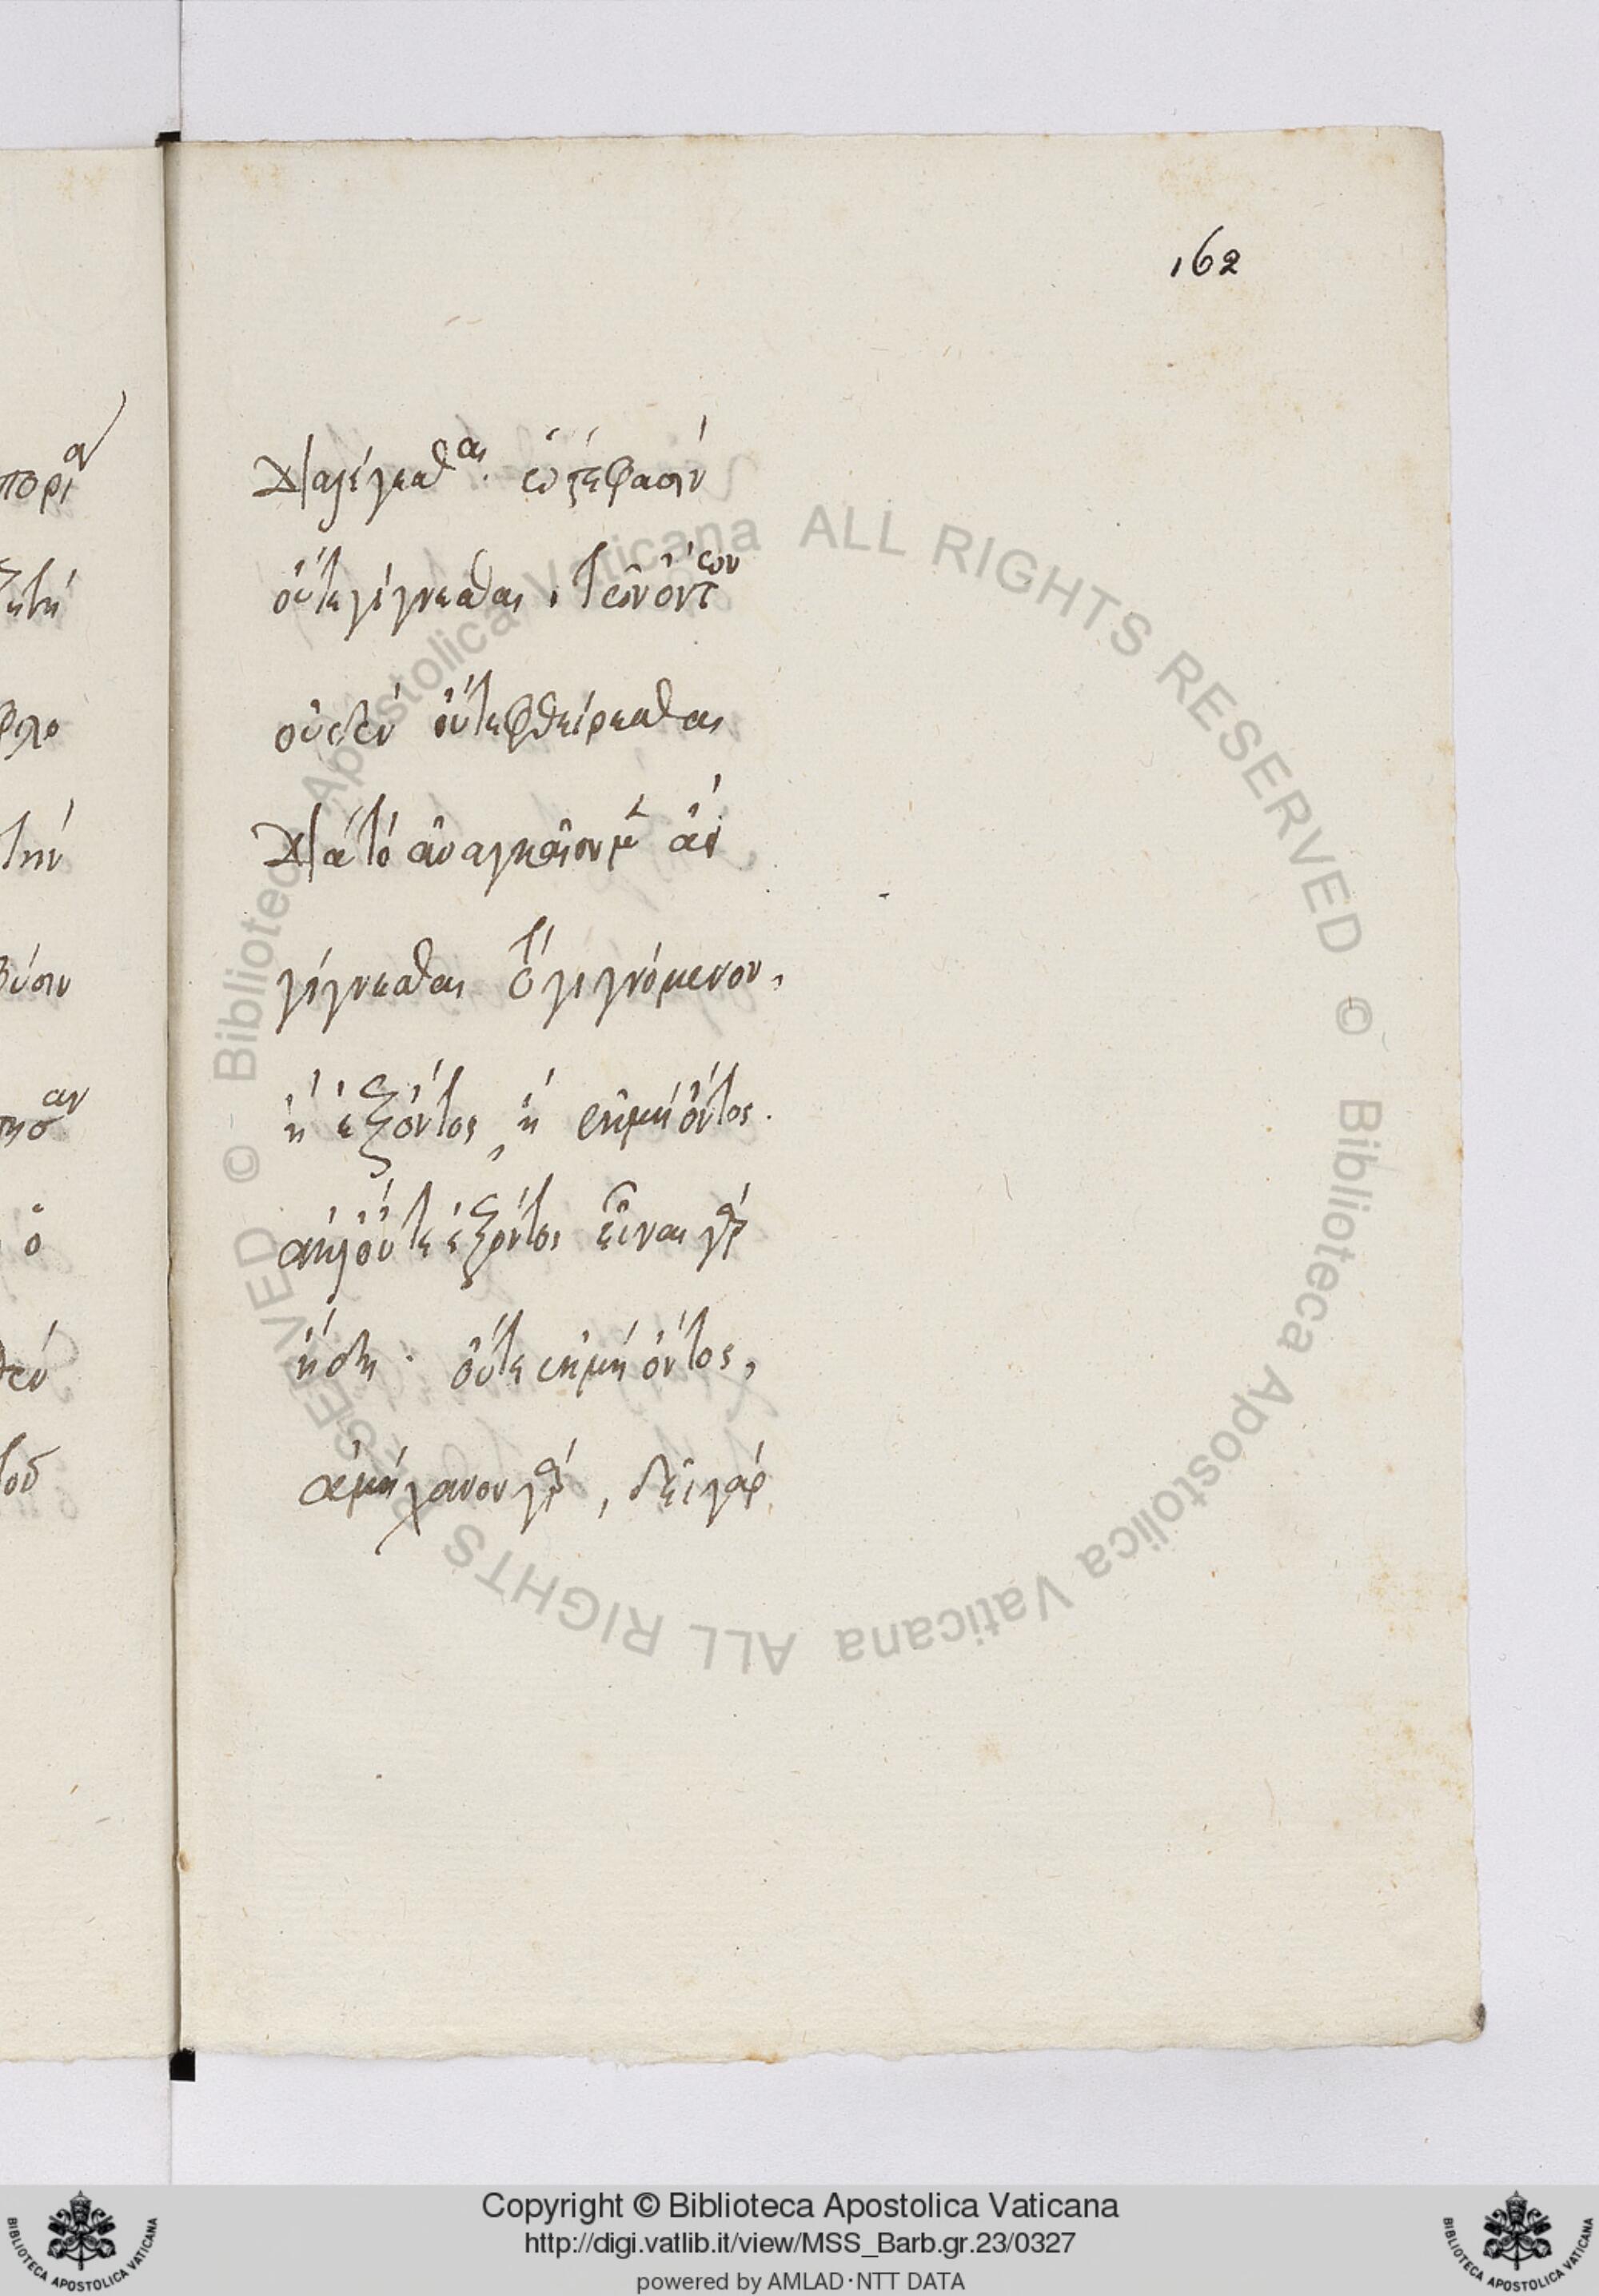 162
διαλέγεσθαι. ὥστέ φασίν
οὔτε γίγνεσθαι, τῶν ὄντων
οὐδὲν οὔτε φθείρεσθαι
διὰ τὸ ἀναγκαῖον μὲν
γίγνεσθαι τὸ γιγνόμενον,
ἢ ἐξ ὄντος, ἢ ἐκ μὴ ὄντος.
ἀλλ οὔτε ἐξ ὄντος εἶναι γὰρ
ἤδη. οὔτε ἐκ μὴ ὄντος,
ἀμήχανον γὰρ, δεῖ γὰρ
πορι
αν
φιλο
την
ο
του
Biblioteca Apostolica Vaticana ALL RIGHTS RESERVED ©
Biblioteca Apostolica Vaticana ALL RIGHTS RESERVED ©
Copyright © Biblioteca Apostolica Vaticana
http://digi.vatlib.it/view/MSS_Barb.gr.23/0327
powered by AMLAD·NTT DATA
BIBLIOTECA APOSTOLICA VATICANA
BIBLIOTECA APOSTOLICA VATICANA